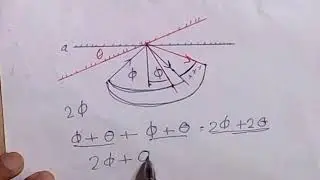 a
θ
ϕ ϕ
2ϕ
ϕ + θ + ϕ + θ = 2ϕ + 2θ
2ϕ + θ